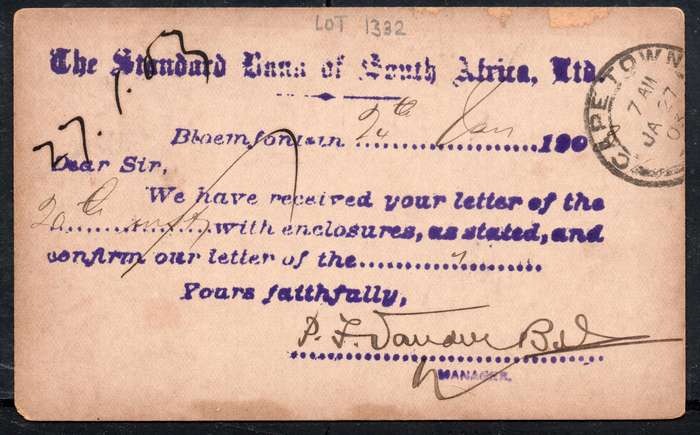 LOT 1332
27.1.03
The Standard Bank of South Africa, Ltd.
CAPE TOWN
7 AM
JA 27
03
Bloemfontein 24th Jan 190
Dear Sir,
We have received your letter of the
20th inst with enclosures, as stated, and
confirm our letter of the
Yours faithfully,
P. F. Vander Byl
MANAGER.